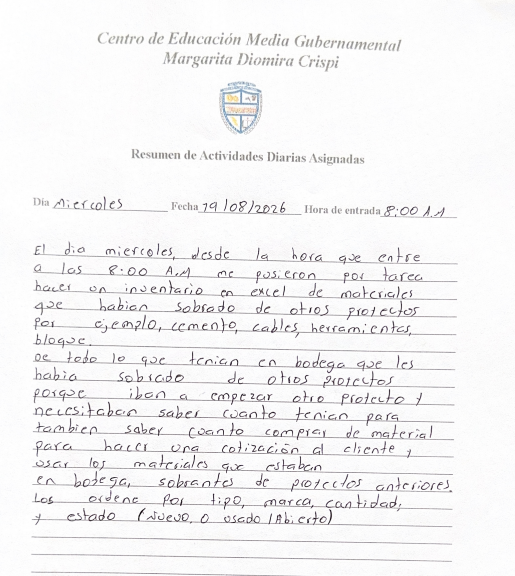 Centro de Educación Media Gubernamental
Margarita Diomira Crispi
Resumen de Actividades Diarias Asignadas
Día Miercoles Fecha 19/08/2026 Hora de entrada 8:00 A.M
El dia miercoles, desde la hora que entre
a las 8:00 A.M me pusieron por tarea
hacer un inventario en excel de materiales
que habian sobrado de otros protectos
por ejemplo, cemento, cables, herramientas,
bloque.
De todo lo que tenian en bodega que les
habia sobrado de otros protectos
porque iban a empezar otro protecto y
necesitaban saber cuanto tenian para
tambien saber cuanto comprar de material
para hacer una cotización al cliente y
usar los materiales que estaban
en bodega, sobrantes de protectos anteriores.
Los ordene por tipo, marca, cantidad,
y estado (Nuevo, o usado/Abierto)